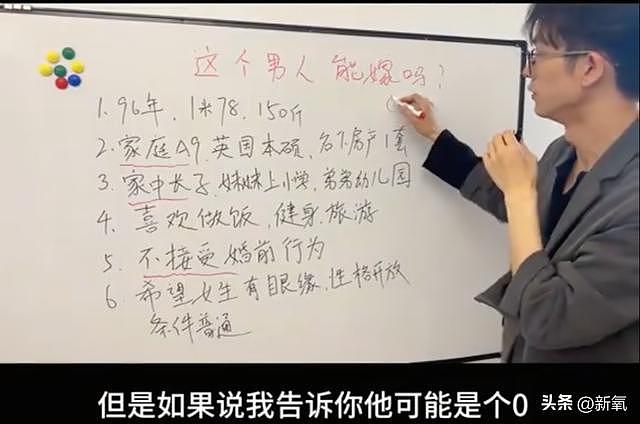 这个男人能嫁吗?
1. 96年, 1米78, 150斤
2. 家庭A9, 英国本硕, 名下房产1套
3. 家中长子, 妹妹上小学, 弟弟幼儿园
4. 喜欢做饭, 健身, 旅游
5. 不接受婚前行为
6. 希望女生有眼缘, 性格开放
条件普通
但是如果说我告诉你他可能是个0
头条 @新氧